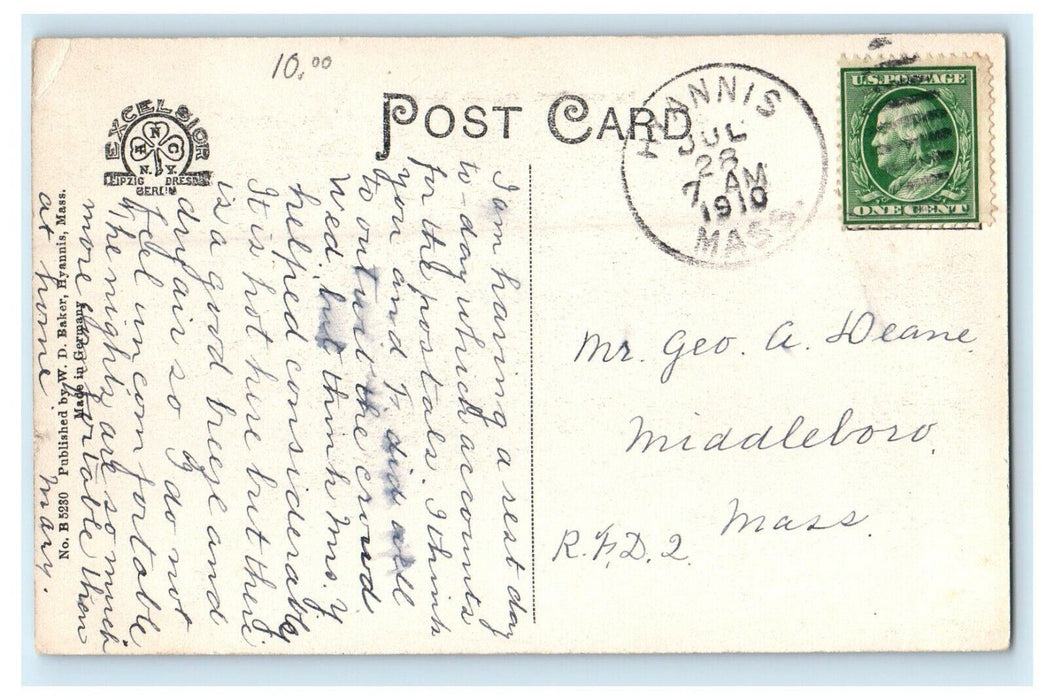 10.00
EXCELSIOR
N
H C
N. Y.
LEIPZIG DRESDEN
BERLIN
POST CARD
HYANNIS
JUL
28
7 AM
1910
MASS.
U.S. POSTAGE
ONE CENT
Mr. Geo. A. Deane
Middleboro,
Mass.
R.F.D. 2.
I am having a rest day
to-day which accounts
for the postals. I think
you and F did well
to outwit the crowd
Wed, but think Mrs. Y
helped considerably
It is hot here but there
is a good breeze and
dry air so I do not
feel uncomfortable
The nights are so much
more comfortable than
at home. Mary.
No. B 5230 Published by W. D. Baker, Hyannis, Mass.
Made in Germany